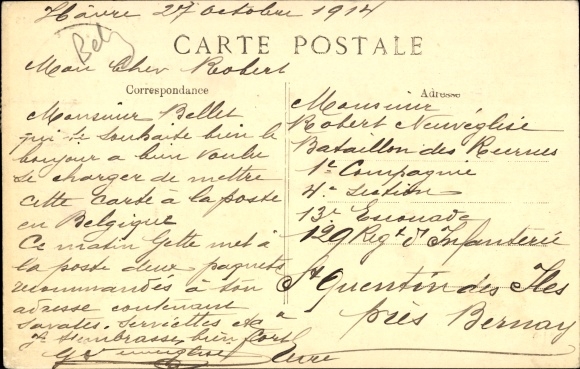 Hâvre 27 Octobre 1914
Bel
CARTE POSTALE
Mon Cher Robert
Correspondance
Monsieur Bellet
qui te souhaite bien le
bonjour a bien voulu
se charger de mettre
cette carte à la poste
en Belgique
Ce matin Gette met à
la poste deux paquets
recommandés à ton
adresse contenant
Savates. Serviettes etc
Je t'embrasse bien fort
Adresse
Monsieur
Robert Neuvéglise
Bataillon des Recrues
1e Compagnie
4e Section
13e Escouade
129 Regt d'Infanterie
St Quentin des Iles
près Bernay
Eure